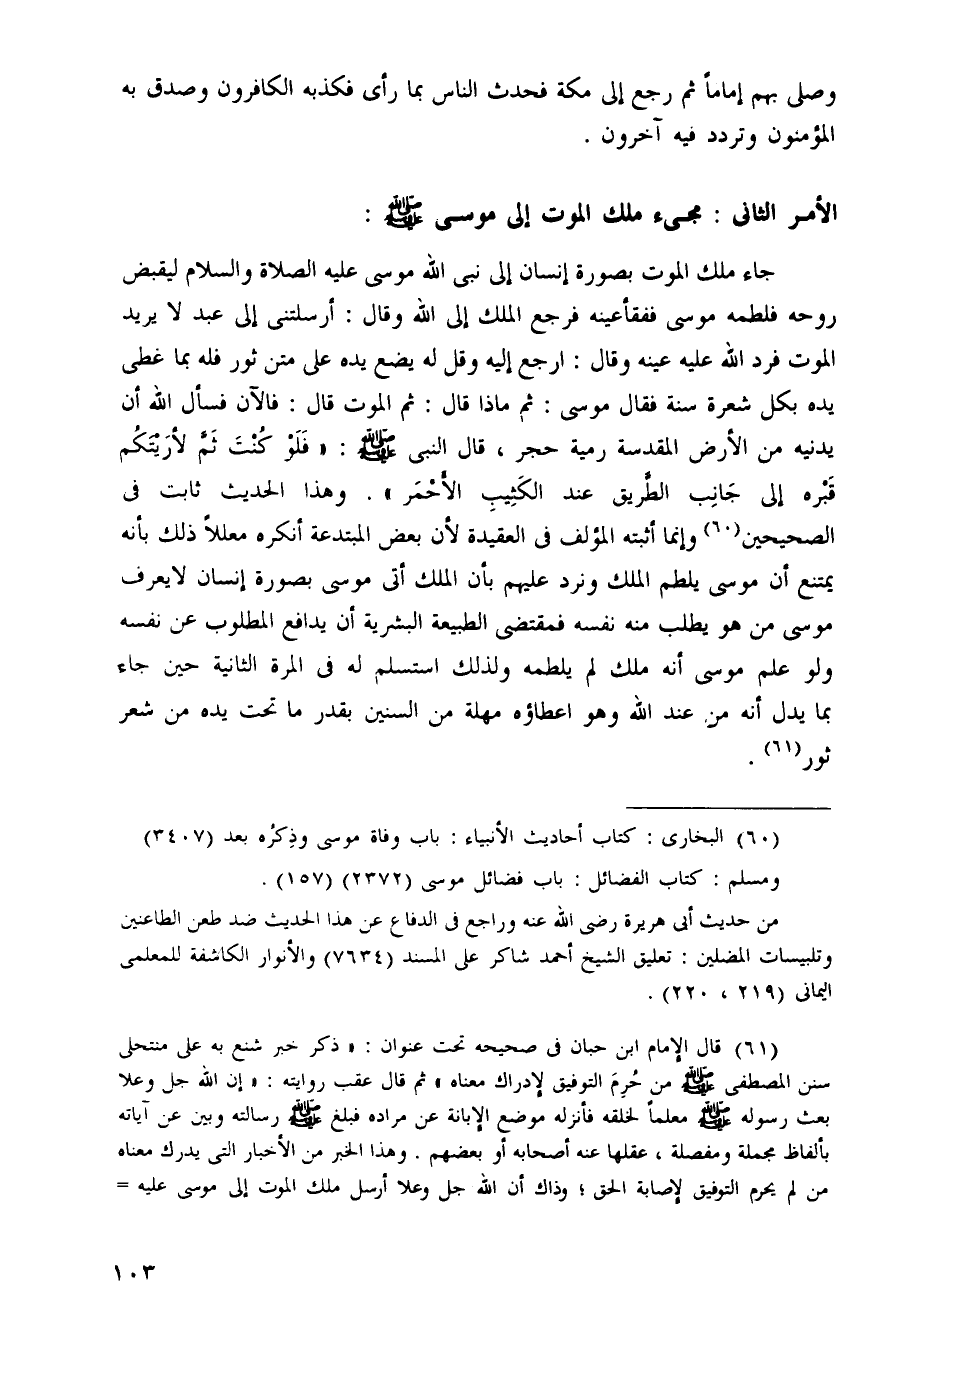 وصلى بهم إماماً ثم رجع إلى مكة فحدث الناس بما رأى فكذبه الكافرون وصدق به
المؤمنون وتردد فيه آخرون .
الأمر الثانى : مجىء ملك الموت إلى موسى ﷺ :
جاء ملك الموت بصورة إنسان إلى نبى الله موسى عليه الصلاة والسلام ليقبض
روحه فلطمه موسى ففقأعينه فرجع الملك إلى الله وقال : أرسلتنى إلى عبد لا يريد
الموت فرد الله عليه عينه وقال : ارجع إليه وقل له يضع يده على متن ثور فله بما غطى
يده بكل شعرة سنة فقال موسى : ثم ماذا قال : ثم الموت قال : فالآن فسأل الله أن
يدنيه من الأرض المقدسة رمية حجر ، قال النبى ﷺ : « فَلَوْ كُنْتَ ثَمَّ لأرَيْتَكُم
قَبْره إلى جَانِب الطَّريق عند الكَثِيبِ الأَحْمَر » . وهذا الحديث ثابت فى
الصحيحين(٦٠) وإنما أثبته المؤلف فى العقيدة لأن بعض المبتدعة أنكره معللاً ذلك بأنه
يمتنع أن موسى يلطم الملك ونرد عليهم بأن الملك أتى موسى بصورة إنسان لايعرف
موسى من هو يطلب منه نفسه فمقتضى الطبيعة البشرية أن يدافع المطلوب عن نفسه
ولو علم موسى أنه ملك لم يلطمه ولذلك استسلم له فى المرة الثانية حين جاء
بما يدل أنه من عند الله وهو اعطاؤه مهلة من السنين بقدر ما تحت يده من شعر
ثور(٦١) .
(٦٠) البخارى : كتاب أحاديث الأنبياء : باب وفاة موسى وذِكرُه بعد (٣٤٠٧)
ومسلم : كتاب الفضائل : باب فضائل موسى (٢٣٧٢) (١٥٧) .
من حديث أبى هريرة رضى الله عنه وراجع فى الدفاع عن هذا الحديث ضد طعن الطاعنين
وتلبيسات المضلين : تعليق الشيخ أحمد شاكر على المسند (٧٦٣٤) والأنوار الكاشفة للمعلمى
اليمانى (٢١٩ ، ٢٢٠) .
(٦١) قال الإمام ابن حبان فى صحيحه تحت عنوان : « ذكر خبر شنع به على منتحلى
سنن المصطفى ﷺ من حُرِمَ التوفيق لإدراك معناه » ثم قال عقب روايته : « إن الله جل وعلا
بعث رسوله ﷺ معلماً لخلقه فأنزله موضع الإبانة عن مراده فبلغ ﷺ رسالته وبين عن آياته
بألفاظ مجملة ومفصلة ، عقلها عنه أصحابه أو بعضهم . وهذا الخبر من الأخبار التى يدرك معناه
من لم يحرم التوفيق لإصابة الحق ؛ وذاك أن الله جل وعلا أرسل ملك الموت إلى موسى عليه =
١٠٣